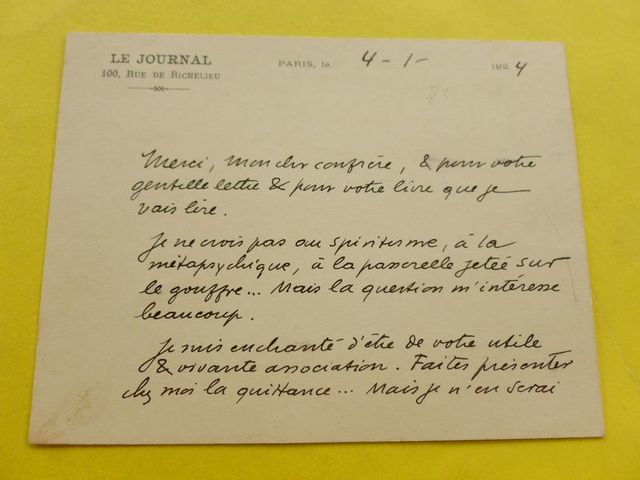 LE JOURNAL
100, RUE DE RICHELIEU
PARIS, le 4 - 1 - 1924
75
Merci, mon cher confrère, & pour votre
gentille lettre & pour votre livre que je
vais lire.
Je ne crois pas au spiritisme, à la
métapsychique, à la passerelle jetée sur
le gouffre... Mais la question m'intéresse
beaucoup.
Je suis enchanté d'être de votre utile
& vivante association. Faites présenter
chez moi la quittance... Mais je n'en serai